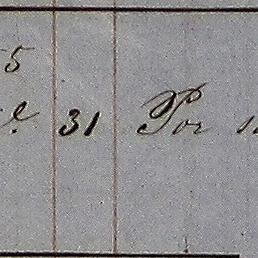 5
31 Por